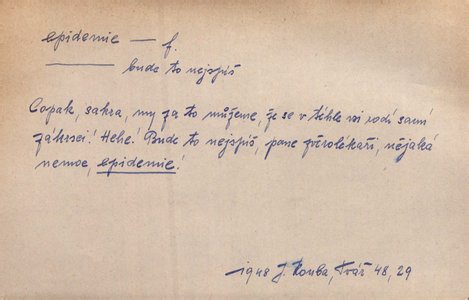 epidemie — f.
bude to nejspíš
Copak, sakra, my za to můžeme, že se v téhle vsi rodí samí
zákrsci! Hehe! Bude to nejspíš, pane zvěrolékaři, nějaká
nemoc, epidemie!
1948 J. Kouba, Tvář 48, 29